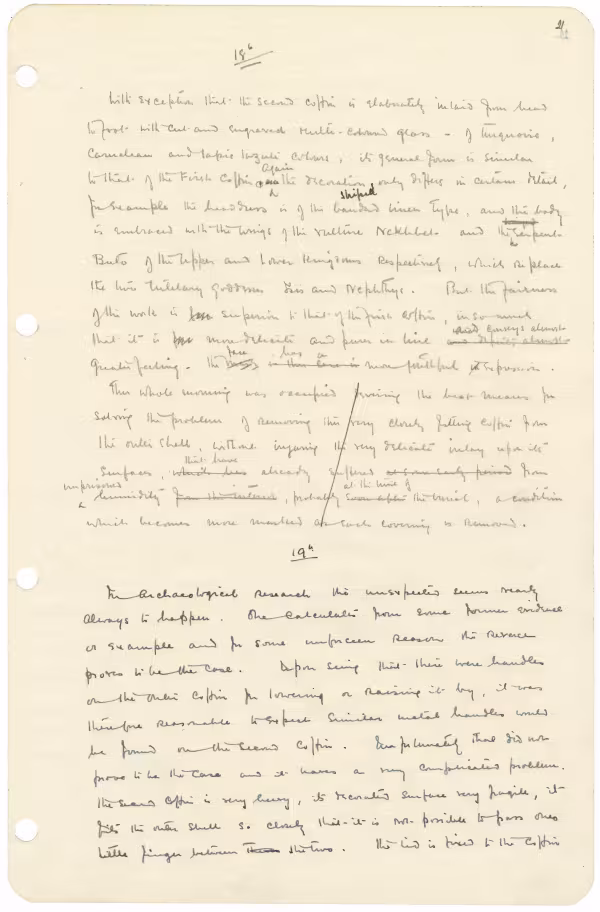 21
18th
With exception that the second coffin is elaborately inlaid from head
to foot with cut and engraved multi-coloured glass - of turquoise,
Carnelean and lapis lazuli colours, its general form is similar
to that of the First Coffin. Again the decoration only differs in certain detail,
for example the headdress is of the striped banded linen type, and the body
is embraced with the wings of the vulture Nekhbet and the serpent
Buto of the Upper and Lower Kingdoms respectively, which replace
the two tutelary goddesses Isis and Nephthys. But the fairness
of this work is superior to that of the first coffin, in so much
that it is more delicate and pure in line and conveys almost
greater feeling. The face has a more youthful expression.
This whole morning was occupied devising the best means for
solving the problem of removing this very closely fitting coffin from
the outer shell, without injuring the very delicate inlay upon its
surfaces, that have already suffered from
unprisoned humidity, probably at the time of the burial, a condition
which becomes more marked as each covering is removed.
19th
In Archaeological research the unexpected seems nearly
always to happen. One calculates from some former evidence
or example and for some unforseen reason the reverse
proves to be the case. Upon seeing that there were handles
on the outer coffin for lowering or raising it by, it was
therefore reasonable to expect similar metal handles would
be found on the second coffin. Unfortunately that did not
prove to be the case and it leaves a very complicated problem.
The second coffin is very heavy, its decorated surface very fragile, it
fits the outer shell so closely that it is not possible to pass ones
little finger between the two. The lid is fixed to the coffin